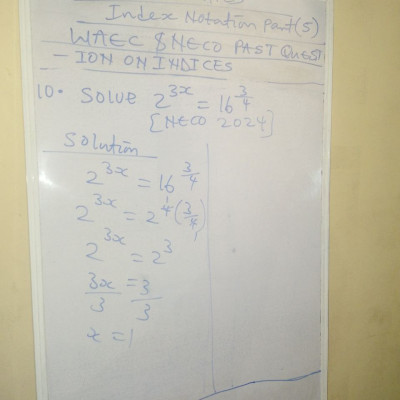 Index Notation Part(5)
WAEC & NECO PAST QUEST
- ION ON INDICES
10. SOLVE 2^{3x} = 16^{3/4}
[NECO 2024]
Solution
2^{3x} = 16^{3/4}
2^{3x} = 2^{4(3/4)}
2^{3x} = 2^3
3x/3 = 3/3
x = 1